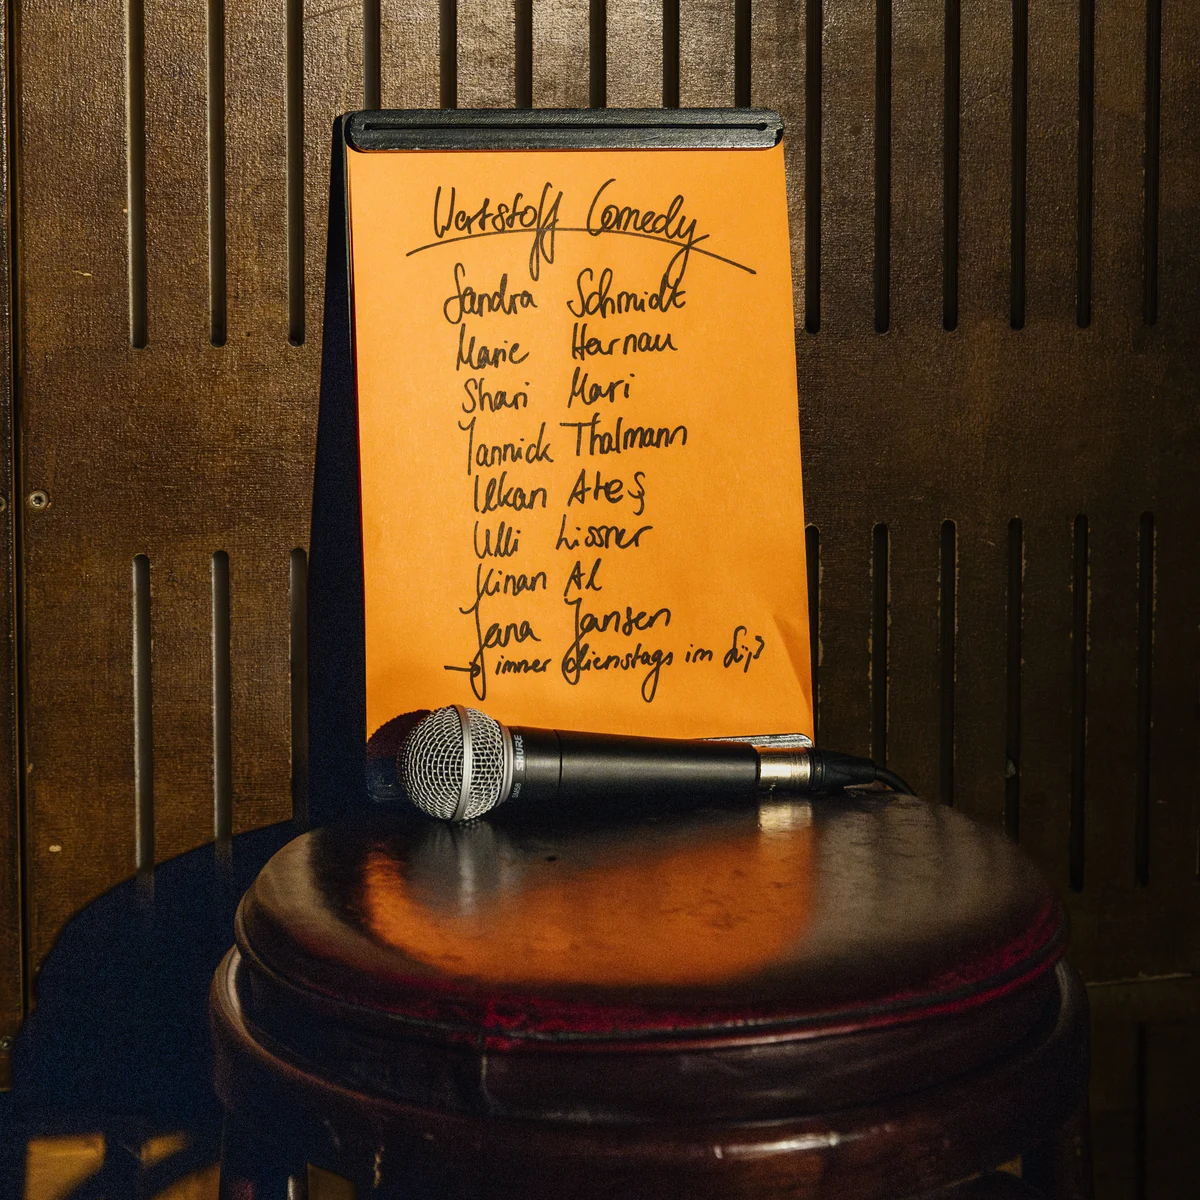 Wertstoff Comedy
Sandra Schmidt
Marie Harnau
Shari Mari
Yannick Thalmann
Ulkan Ateş
Ulli Lissner
Kinan Al
Jana Jansen
→ immer dienstags im
SHURE